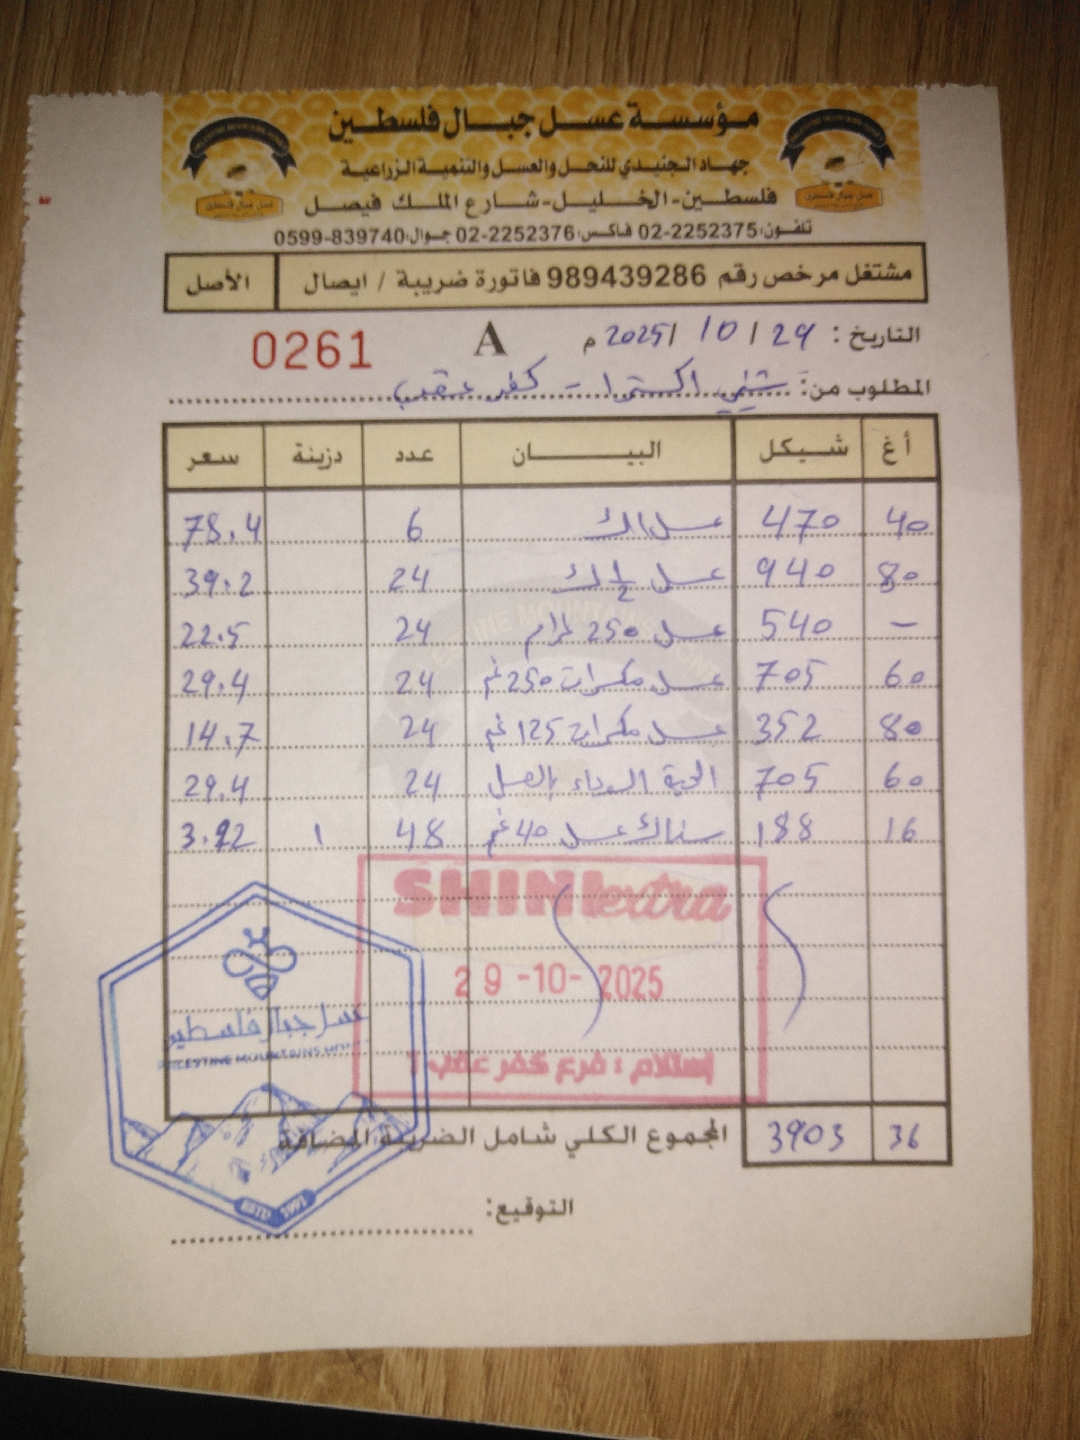 مؤسسة عسل جبال فلسطين
جهاد الجنيدي للنحل والعسل والتنمية الزراعية
فلسطين-الخليل-شارع الملك فيصل
تلفون:02-2252375 فاكس:02-2252376 جوال:0599-839740
مشتغل مرخص رقم 989439286 فاتورة ضريبة / ايصال الأصل
التاريخ: 29 / 10 / 2025 م A 0261
المطلوب من: شيني اكسترا - كفر عقب
أغ شيكل البيان عدد دزينة سعر
40 470 عسل 1 ك 6 78.4
80 940 عسل 1/2 ك 24 39.2
- 540 عسل 250 غرام 24 22.5
60 705 عسل مكسرات 250 غم 24 29.4
80 352 عسل مكسرات 125 غم 24 14.7
60 705 الحبة السوداء بالعسل 24 29.4
16 188 سناك عسل 40 غم 48 1 3.92
SHINI extra
29-10-2025
إستلام : فرع كفر عقب 1
عسل جبال فلسطين
PALESTINE MOUNTAINS HONEY
المجموع الكلي شامل الضريبة المضافة 3903 36
التوقيع: